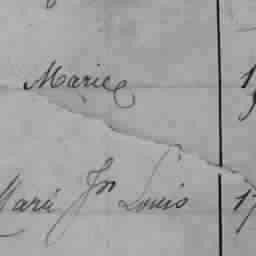 Marie 1
Marie Jn Louis 17